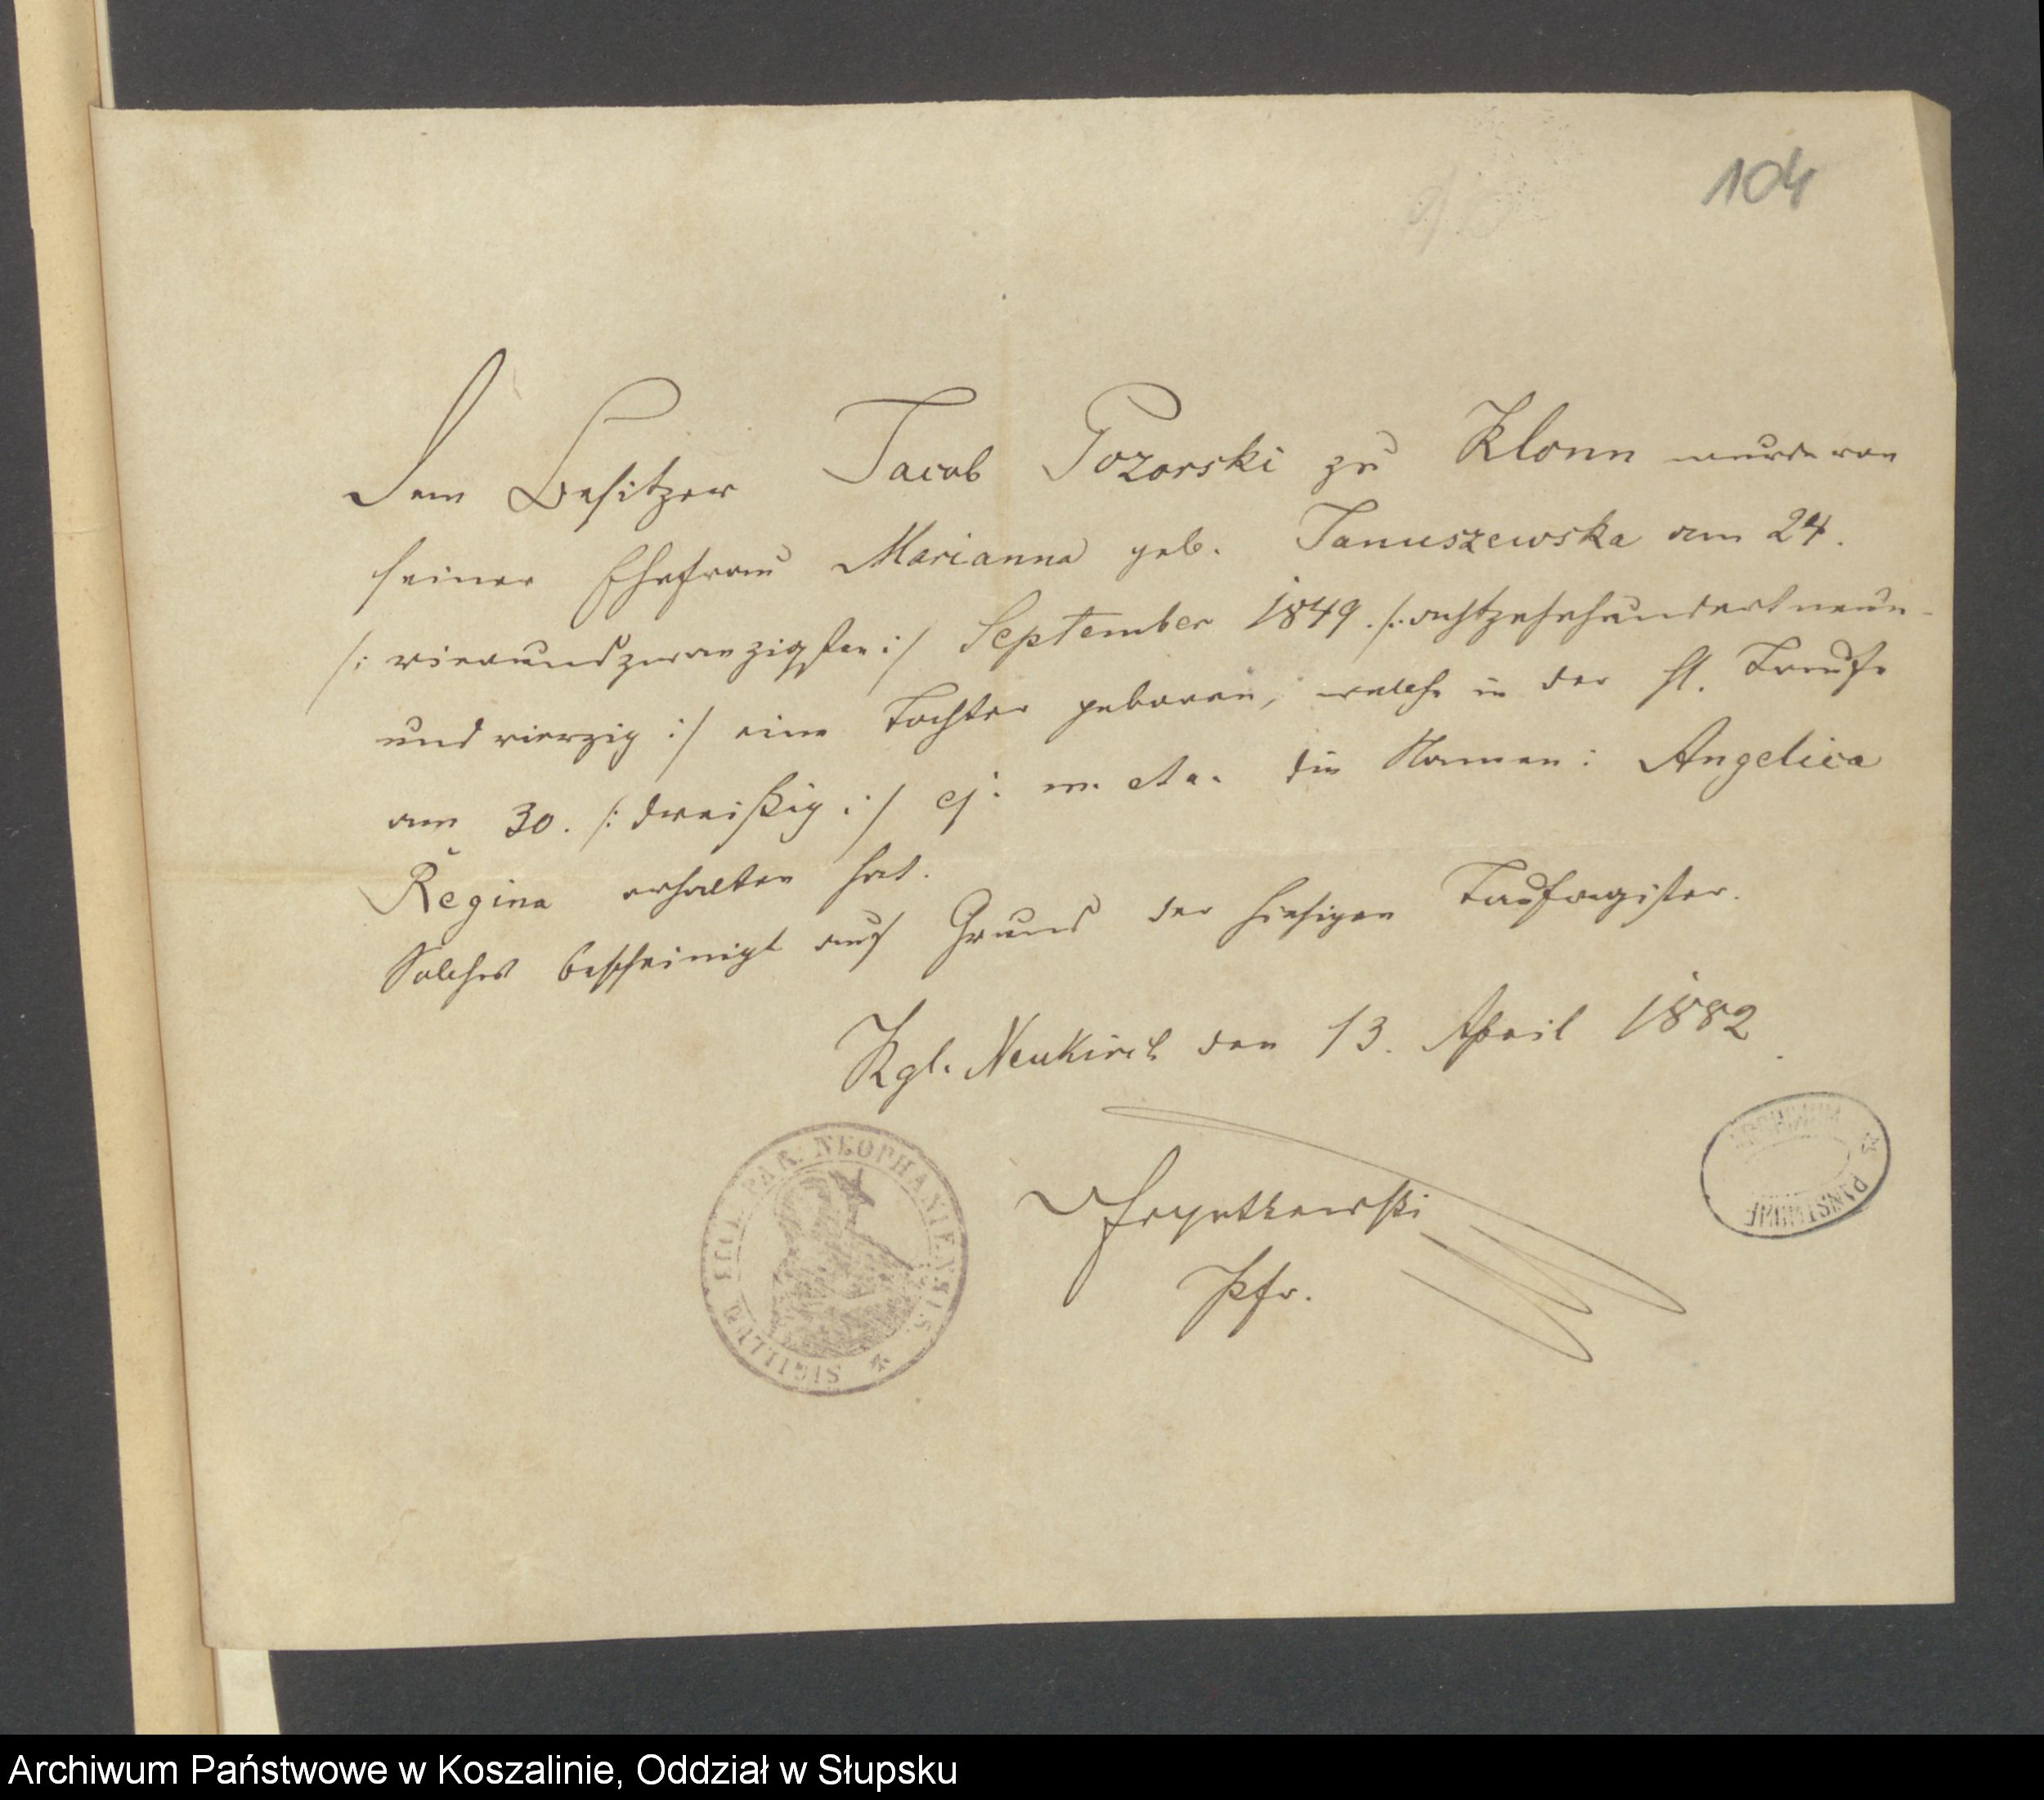 104
Dem Besitzer Jacob Pozorski zu Klonn wurde von
seiner Ehefrau Marianna geb. Januszewska am 24.
/: vierundzwanzigsten :/ September 1849. /: achtzehnhundertneun-
und vierzig :/ eine Tochter geboren, welche in der hl. Taufe
am 30. /: dreißig :/ ej. m. et a. die Namen: Angelica
Regina erhalten hat.
Solches bescheinigt auf Grund der hiesigen Taufregister.
Kgl. Neukirch den 13. April 1882.
Pfr.
SIGILLUM PAR: NEOPHANIENSIS *
ARCHIWUM PAŃSTWOWE
Archiwum Państwowe w Koszalinie, Oddział w Słupsku